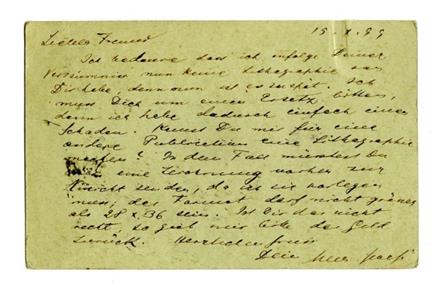 15.X.99
Liebes Freund
Ich bedaure dass ich infolge Deiner
nun keine Lithographie von
Dir habe, denn nun ist es zu spät. Ich
muss Dich um einen Ersatz bitten,
denn ich habe dadurch einfach einen
Schaden. Kannst Du mir für eine
andere Publication eine Lithographie
machen? In dem Fall müsstest Du
mir eine Zeichnung vorher zur
Ansicht senden, da ich sie vorlegen
muss, das Format darf nicht grösser
als 28 x 36 sein. Ist Dir das nicht
recht, so gieb mir bitte das Geld
zurück. Herzlichen Gruss
Dein